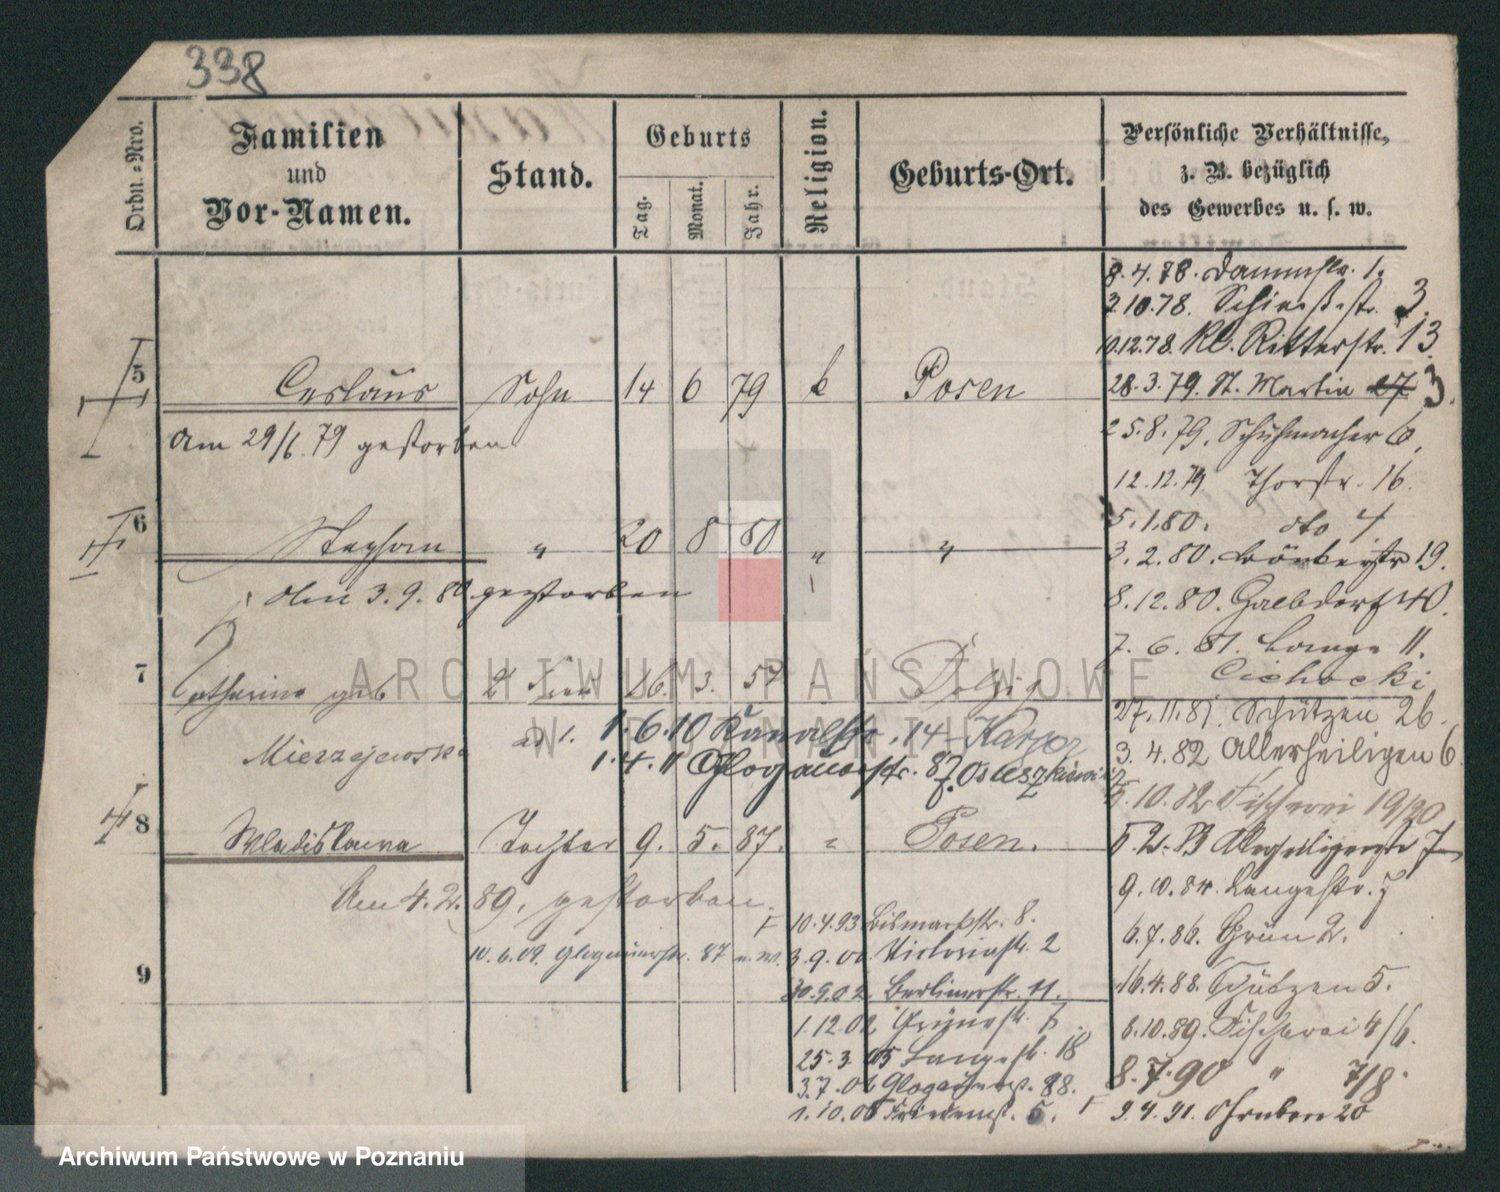 338
Ordn.-Nro.
Familien
und
Vor-Namen.
Stand.
Geburts
Tag.
Monat.
Jahr.
Religion.
Geburts-Ort.
Persönliche Verhältnisse,
z. B. bezüglich
des Gewerbes u. s. w.
8.4.78. Dammstr. 1.
2.10.78. Schießstr. 3
10.12.78. Kl. Ritterstr. 13
5 Ceslaus Sohn 14 6 79 k Posen
28.3.79. St. Martin 27 3.
Am 29/6. 79 gestorben
25.8.79. Schuhmacher 6,
12.12.79 Thorstr. 16.
5.1.80. dto 4
6 Stephan " 20 8 80 " "
3.2.80. 19.
den 3.9.80 gestorben
8.12.80. 40.
7.6.81. Lange 11.
Cichocki
7 Catharina geb 2 Frau 26. 3. 57 Dolzig
27.11.81. Schützen 26.
Mierzejewska
ad 1. 1.6.10 Kanalstr. 14 Karger
3.4.82 Allerheiligen 6.
1.4.11 Glogauerstr. 87.
10.82 Fischerei 19/20
8 Wladislawa Tochter 9. 5. 87. " Posen.
Allerheiligenstr 7
Am 4.2.89. gestorben.
9.10.84. Langestr. 7
10.4.93 Bismarckstr. 8.
6.7.86. Grün 2.
10.6.09. Glogauerstr. 87 u. w.
3.9.00 Victoriastr. 2
9
30.9.02 Berlinerstr. 11.
16.4.88. Schützen 5.
1.12.02 Grünestr.
8.10.89. Fischerei 4/6.
25.3.05 Langestr. 18
3.7.06 Glogauerst. 88.
8.7.90 " 7/8.
1.10.08 Friedenst. 5.
9.4.91. Graben 20
ARCHIWUM PAŃSTWOWE
W POZNANIU
Archiwum Państwowe w Poznaniu